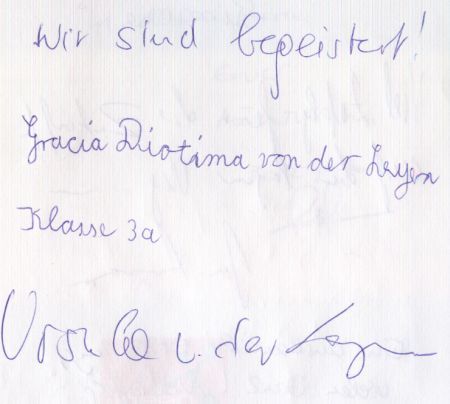 Wir sind begeistert!
Gracia Diotima von der Leyen
Klasse 3a
Ursula v. der Leyen